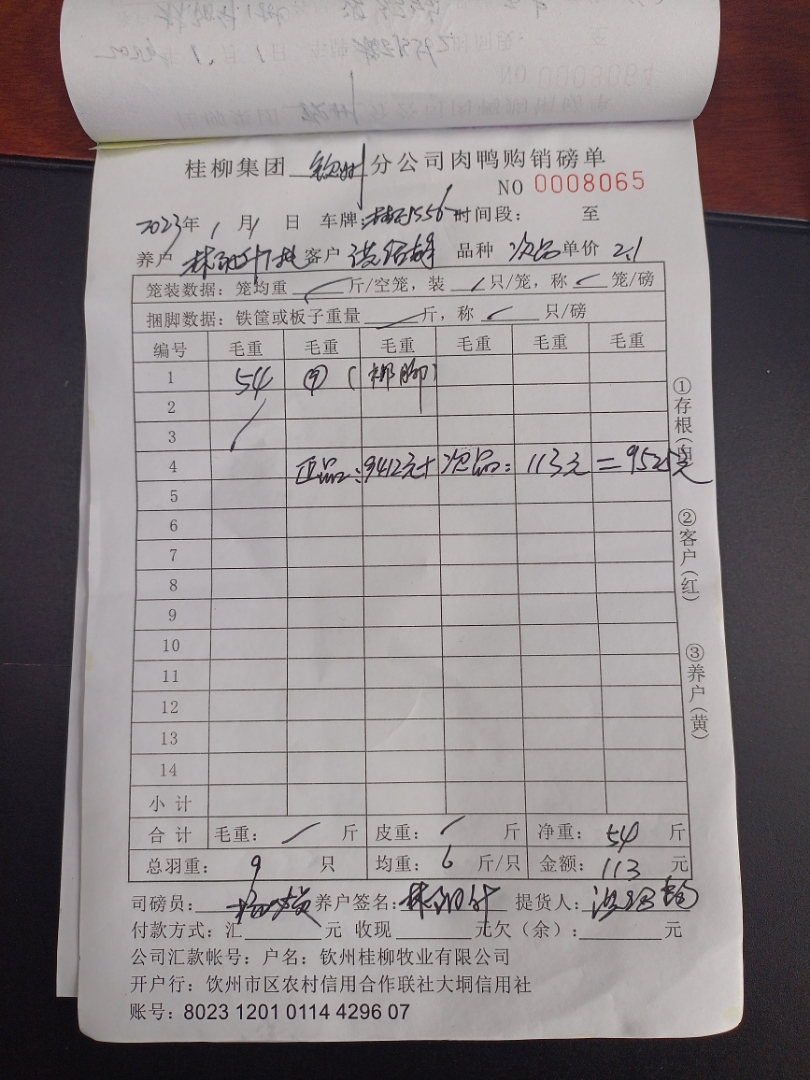 桂柳集团 钦州 分公司肉鸭购销磅单
NO 0008065
2023年 1 月 1 日 车牌: 时间段: 至
养户 客户 品种 次品 单价 2.1
笼装数据: 笼均重 斤/空笼, 装 只/笼, 称 笼/磅
捆脚数据: 铁筐或板子重量 斤, 称 只/磅
编号 毛重 毛重 毛重 毛重 毛重 毛重
1 54 ⑨ (绑脚)
2
3
4 正品: 9412元+次品: 113元=9525元
5
6
7
8
9
10
11
12
13
14
小计
合计 毛重: 斤 皮重: 斤 净重: 54 斤
总羽重: 9 只 均重: 6 斤/只 金额: 113 元
司磅员: 养户签名: 提货人:
付款方式: 汇 元 收现 元欠(余): 元
公司汇款帐号: 户名: 钦州桂柳牧业有限公司
开户行: 饮州市区农村信用合作联社大垌信用社
账号: 8023 1201 0114 4296 07
①存根(白)
②客户(红)
③养户(黄)